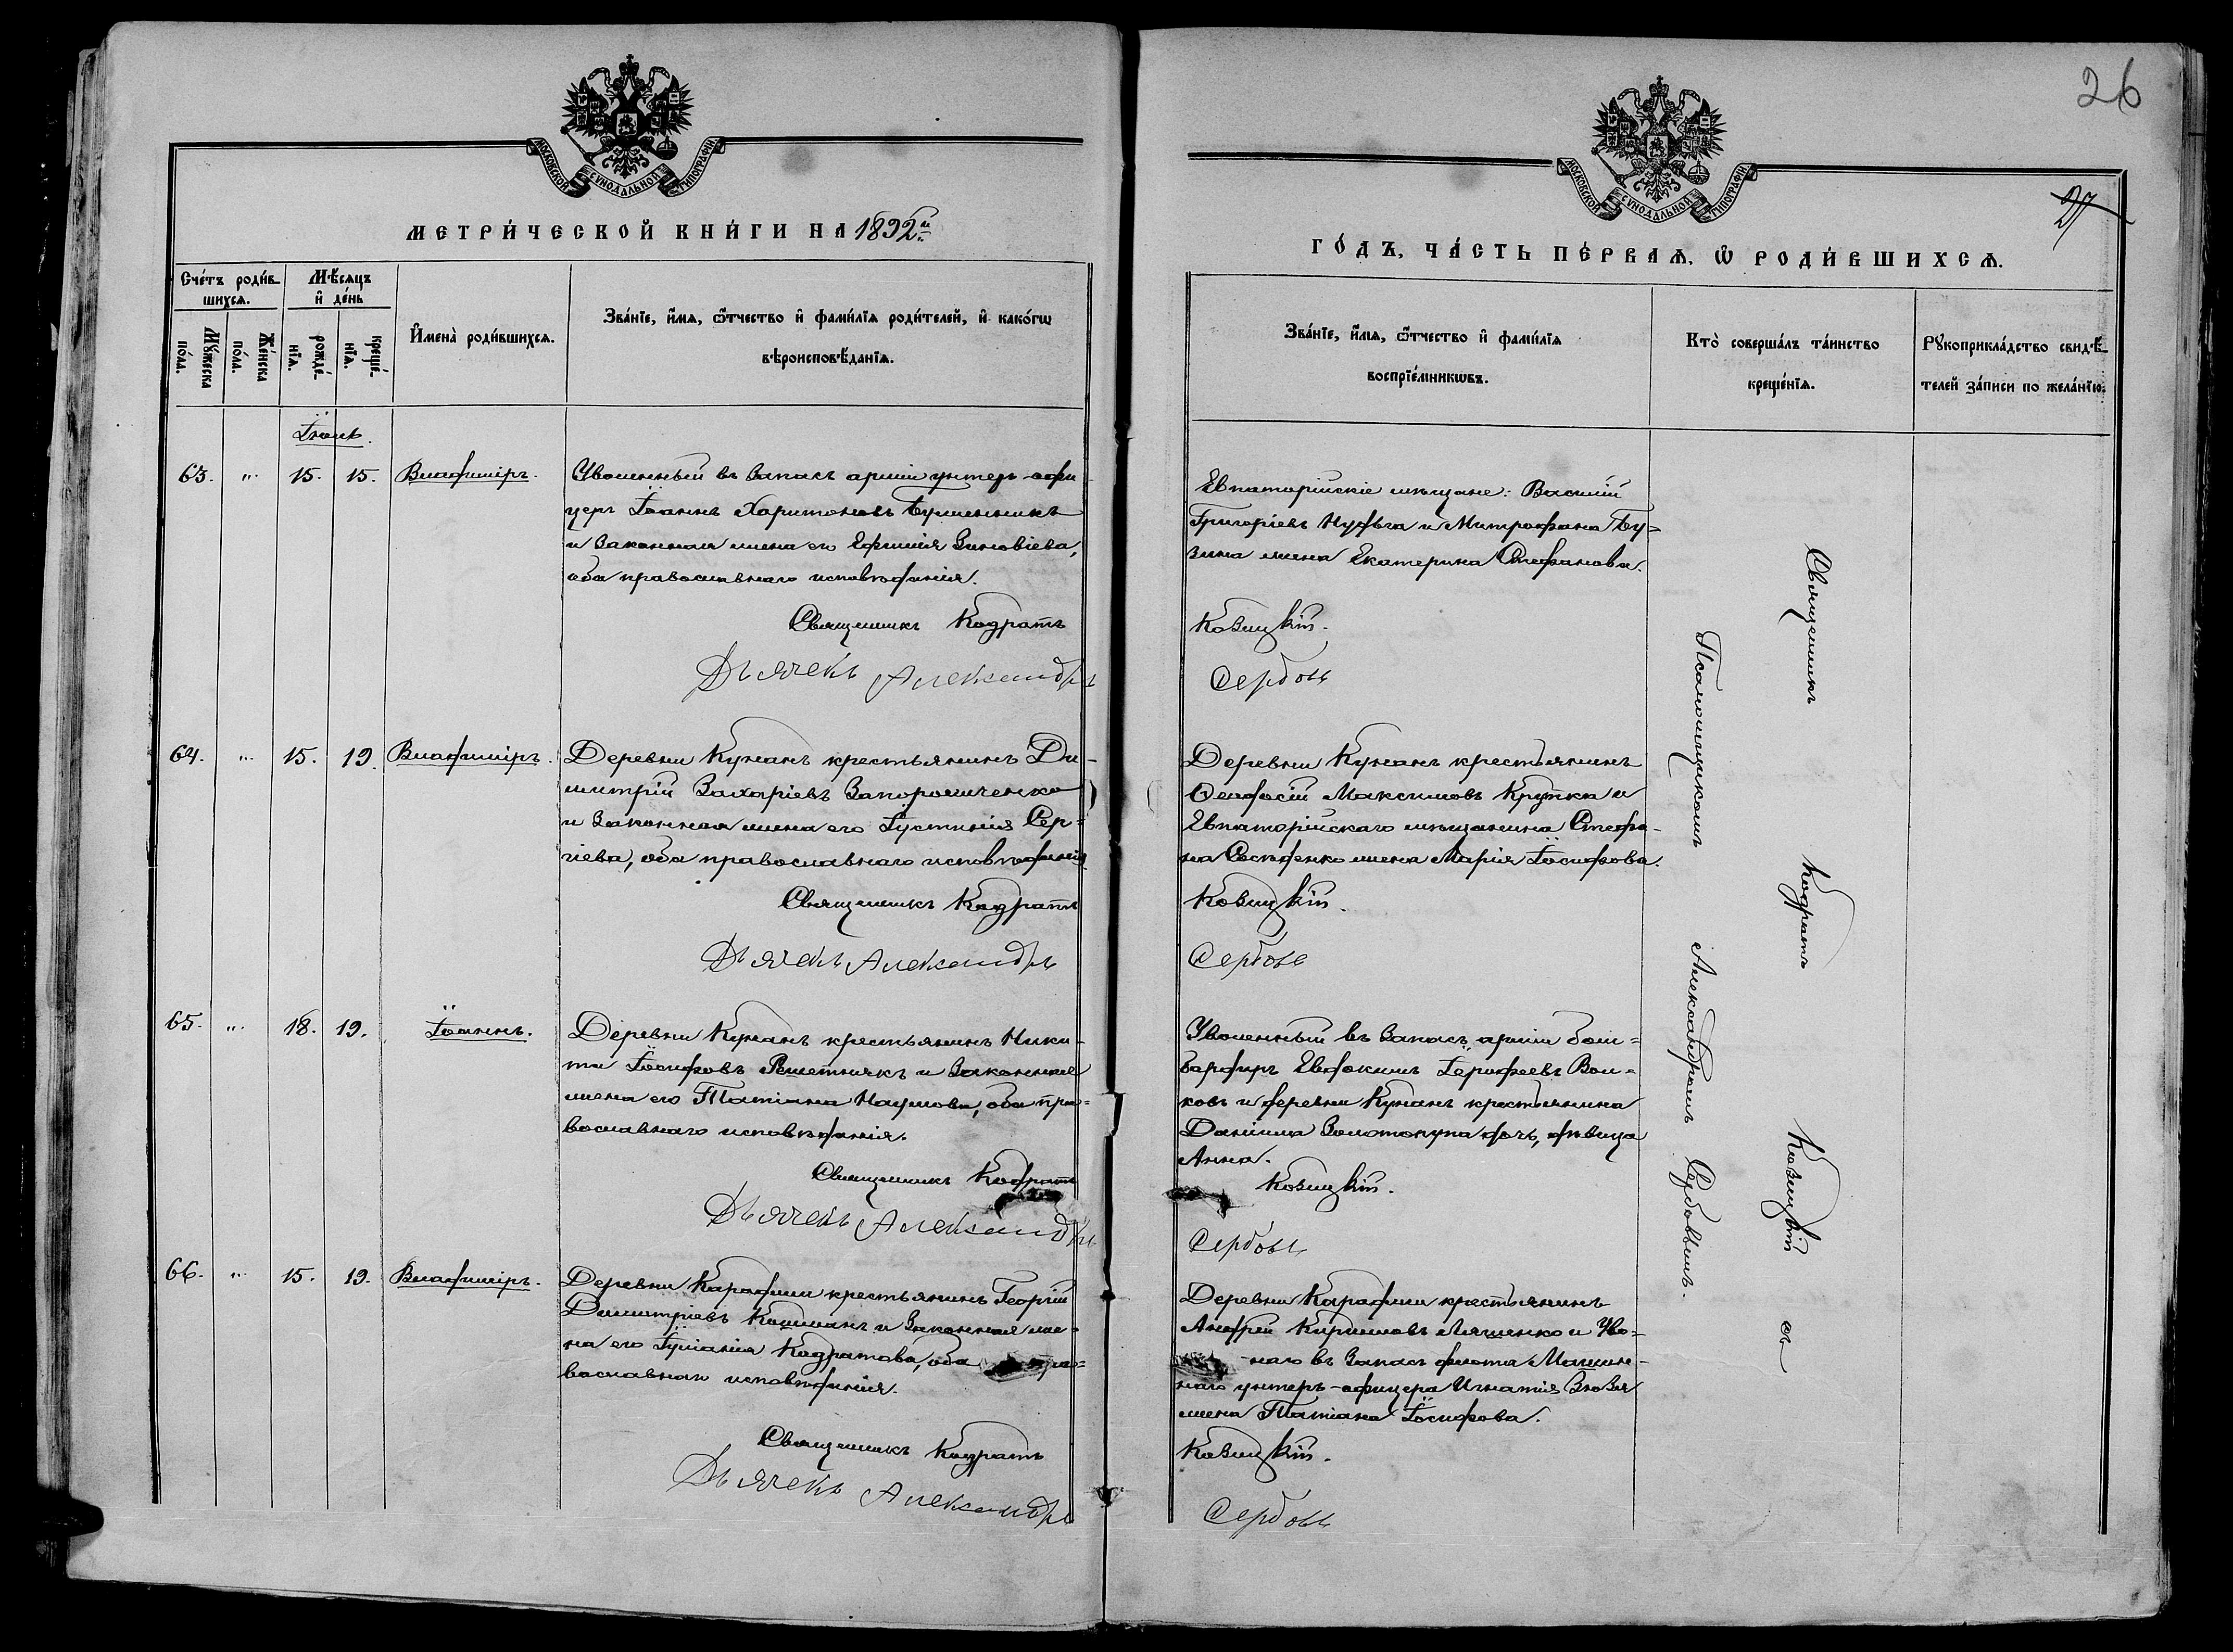 26
27
МОСКОВСКОЙ СѴНОДАЛЬНОЙ ТИПОГРАФІИ
МОСКОВСКОЙ СѴНОДАЛЬНОЙ ТИПОГРАФІИ
МЕТРИ́ЧЕСКОЙ КНИ́ГИ НА 1892й
ГО́ДЪ, ЧА́СТЬ ПЕ́РВАѦ, Ѡ҆ РОДИ́ВШИХСѦ.
Сче́тъ роди́в-
шихсѧ.
Мꙋ́жеска
по́ла.
Же́нска
по́ла.
Мѣ́сѧцъ
и҆ де́нь
рожде́-
нїѧ.
креще́-
нїѧ.
И҆мена̀ роди́вшихсѧ.
Зва́нїе, и҆́мѧ, ѻ҆́тчество и҆ фами́лїѧ роди́телей, и҆ како́гѡ
вѣроисповѣ́данїѧ.
Зва́нїе, и҆́мѧ, ѻ҆́тчество и҆ фами́лїѧ
воспрїе́мникѡвъ.
Кто̀ соверша́лъ та́инство
креще́нїѧ.
Рꙋкоприкла́дство свидѣ́-
телей за́писи по жела́нїю.
Іюль.
63. " 15. 15. Владиміръ.
Уволенный въ запасъ арміи унтеръ-офи-
церъ Іоаннъ Харитоновъ Бушинникъ
и законная жена его Ефимія Зиновіева,
оба православнаго исповѣданія.
Священникъ Кодратъ
Дьячекъ Александръ
Евпаторійскіе мѣщане: Василій
Григоріевъ Нудьга и Митрофана Бу-
зина жена Екатерина Стефанова.
Козицкій.
Сербовъ
64. " 15. 19. Владиміръ.
Деревни Кунанъ крестьянинъ Ди-
митрій Захаріевъ Запорожченко
и законная жена его Іустинія Сер-
гіева, оба православнаго исповѣданія
Священникъ Кодратъ
Дьячекъ Александръ
Деревни Кунанъ крестьянинъ
Ѳеодосій Максимовъ Крупка и
Евпаторійскаго мѣщанина Стефа-
на жена Марія Іосифова.
Козицкій.
Сербовъ
65. " 18. 19. Іоаннъ.
Деревни Кунанъ крестьянинъ Ники-
та Іосифовъ Решетнякъ и законная
жена его Татіана Наумова, оба пра-
вославнаго исповѣданія.
Священникъ Кодратъ
Дьячекъ Александръ
Уволенный въ запасъ арміи бом-
бардиръ Евдокимъ Іерофеевъ Вол-
ковъ и деревни Кунанъ крестьянина
Даніила Золотопупа дочь, дѣвица
Анна.
Козицкій.
Сербовъ
66. " 15. 19. Владиміръ.
Деревни Караджи крестьянинъ Георгій
Димитріевъ Кошманъ и законная же-
на его Іуліанія Кодратова, оба пра-
вославнаго исповѣданія.
Священникъ Кодратъ
Дьячекъ Александръ
Деревни Караджи крестьянинъ
Андрей Кирилловъ Ляшенко и Уво-
-наго въ запасъ флота Машин-
наго унтеръ-офицера Игнатія Зозя
жена Татіана Іосифова.
Козицкій.
Сербовъ
Священникъ Кодратъ Козицкій съ
Псаломщикомъ Александромъ Сербовымъ.